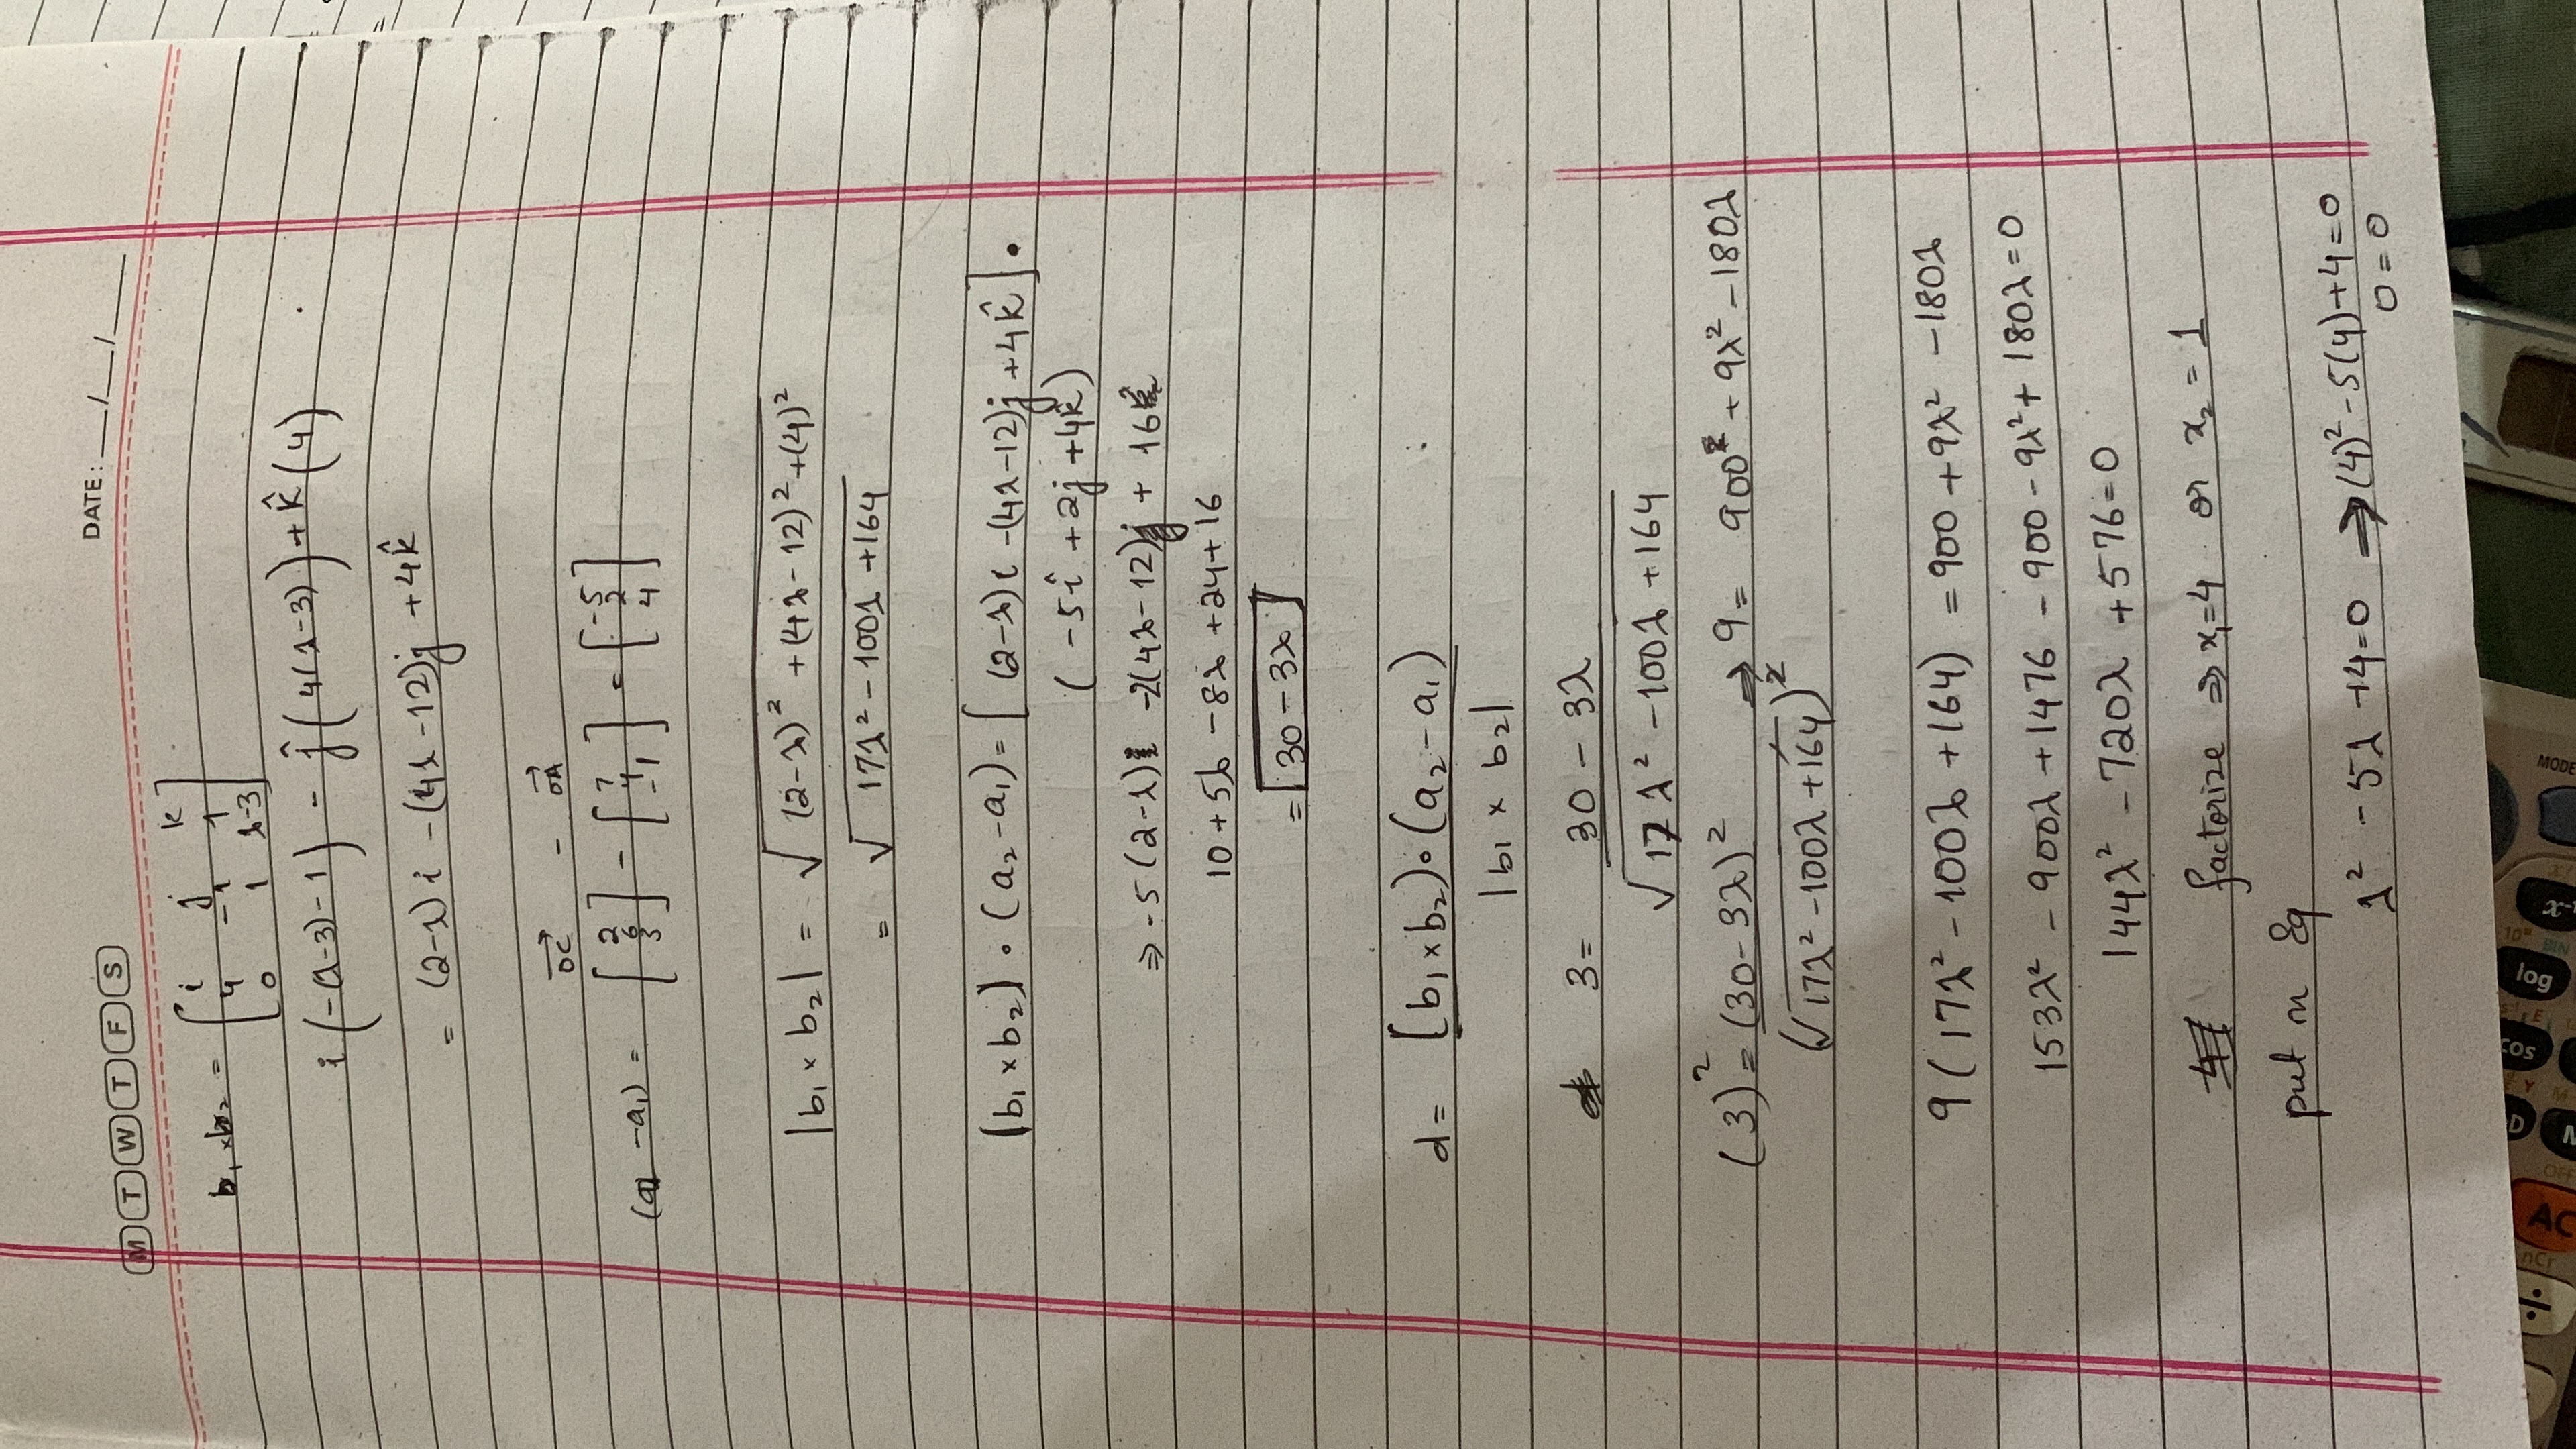 M T W T F S
DATE: __/__/__
b₁ × b₂ = [ i j k
4 -1 1
0 1 λ-3 ]
i(-(λ-3)-1) - ĵ(4(λ-3)) + k̂(4)
= (2-λ)i - (4λ-12)j + 4k̂
→OC - →OA
(a₂ - a₁) = [2 6 3] - [7 4 -1] = [-5 2 4]
|b₁ × b₂| = √((2-λ)² + (4λ-12)² + (4)²)
= √(17λ² - 100λ + 164)
[b₁ × b₂] • (a₂ - a₁) = [(2-λ)i - (4λ-12)j + 4k̂] •
(-5î + 2j + 4k̂)
⇒ -5(2-λ) -2(4λ-12) + 16
10 + 5λ - 8λ + 24 + 16
= 30 - 3λ
d = [b₁ × b₂) • (a₂ - a₁) / |b₁ × b₂|
3 = 30 - 3λ / √(17λ² - 100λ + 164)
(3)² = (30 - 3λ)² / (√(17λ² - 100λ + 164))² ⇒ 9 = 900 + 9λ² - 180λ
9(17λ² - 100λ + 164) = 900 + 9λ² - 180λ
153λ² - 900λ + 1476 - 900 - 9λ² + 180λ = 0
144λ² - 720λ + 576 = 0
factorize ⇒ x₁ = 4 or x₂ = 1
put in Eq
λ² - 5λ + 4 = 0 ⇒ (4)² - 5(4) + 4 = 0
0 = 0
÷ AC cos log MODE